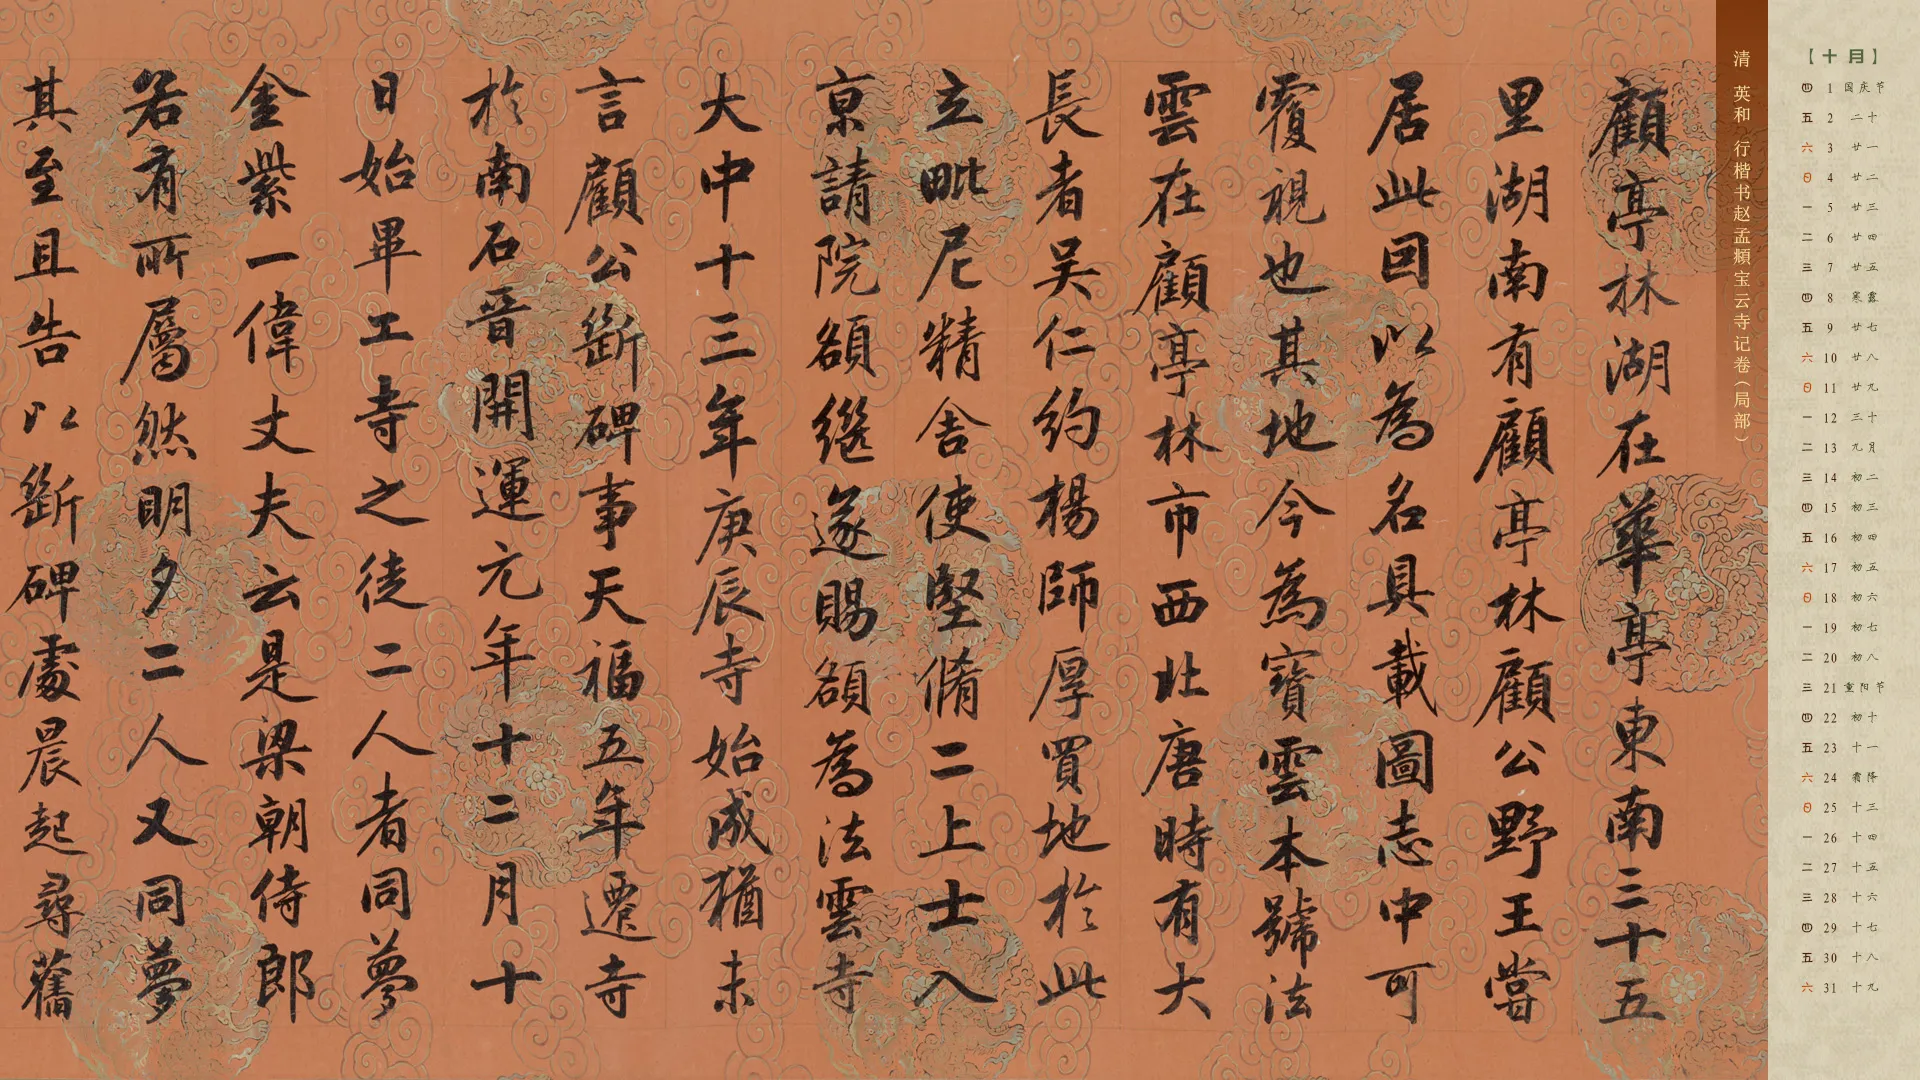 顧亭林湖在華亭東南三十五
里湖南有顧亭林顧公野王嘗
居此因以為名具載圖志中可
覆視也其地今為寶雲本號法
雲在顧亭林市西北唐時有大
長者吴仁約楊師厚買地於此
立毗尼精舍使堅脩二上士入
京請院額額繼遂賜額為法雲寺
大中十三年庚辰寺始成猶未
言顧公斷碑事天福五年遷寺
於南石晉開運元年十二月十
日始畢工寺之徒二人者同夢
金紫一偉丈夫云是梁朝侍郎
若有所屬然明夕二人又同夢
其至且告以斷碑處晨起尋舊
清 英和 行楷书赵孟頫宝云寺记卷(局部)
【十月】
四 1 国庆节
五 2 二十
六 3 廿一
日 4 廿二
一 5 廿三
二 6 廿四
三 7 廿五
四 8 寒露
五 9 廿七
六 10 廿八
日 11 廿九
一 12 三十
二 13 九月
三 14 初二
四 15 初三
五 16 初四
六 17 初五
日 18 初六
一 19 初七
二 20 初八
三 21 重阳节
四 22 初十
五 23 十一
六 24 霜降
日 25 十三
一 26 十四
二 27 十五
三 28 十六
四 29 十七
五 30 十八
六 31 十九